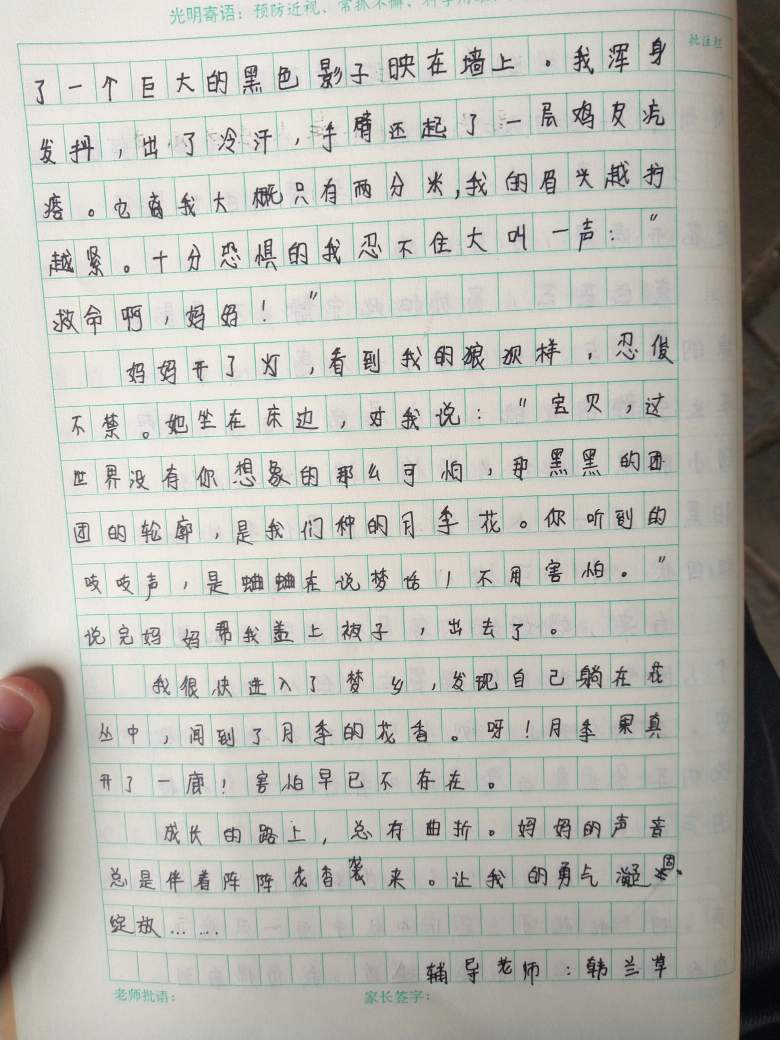 光明寄语：预防近视、常抓不懈、科学用眼
批注栏
了一个巨大的黑色影子映在墙上。我浑身
发抖，出了冷汗，手臂还起了一层鸡皮疙
瘩。它离我大概只有两分米，我的眉头越拧
越紧。十分恐惧的我忍不住大叫一声：“
救命啊，妈妈！”
妈妈开了灯，看到我的狼狈样，忍俊
不禁。她坐在床边，对我说：“宝贝，这
世界没有你想象的那么可怕，那黑黑的团
团的轮廓，是我们种的月季花。你听到的
吱吱声，是蛐蛐在说梦话！不用害怕。”
说完妈妈帮我盖上被子，出去了。
我很快进入了梦乡，发现自己躺在花
丛中，闻到了月季的花香。呀！月季果真
开了一廊！害怕早已不存在。
成长的路上，总有曲折。妈妈的声音
总是伴着阵阵花香袭来。让我的勇气凝固、
绽放……
辅导老师：韩兰草
老师批语：
家长签字：